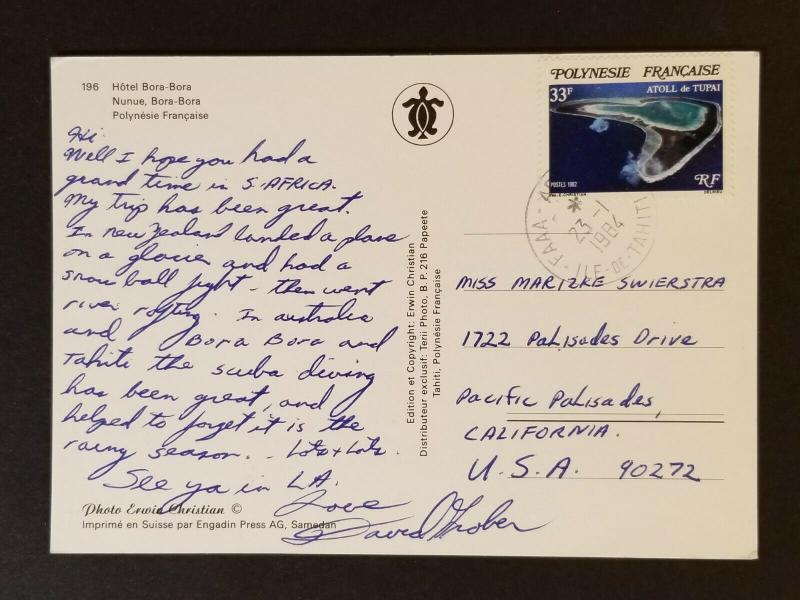 196 Hôtel Bora-Bora
Nunue, Bora-Bora
Polynésie Française
Hi
Well I hope you had a
grand time in S. AFRICA.
My trip has been great.
In new Zealand landed a plane
on a glacier and had a
snow ball fight - then went
river rafting. In australia
and Bora Bora and
Tahiti the scuba diving
has been great, and
helped to forget it is the
rainy season. - Lots + Lots.
See ya in L.A.
Love
David
Photo Erwin Christian ©
Imprimé en Suisse par Engadin Press AG, Samedan
Edition et Copyright: Erwin Christian
Distributeur exclusif: Terii Photo, B.P. 216 Papeete
Tahiti, Polynésie Française
POLYNESIE FRANÇAISE
33F ATOLL de TUPAI
POSTES 1982
RF
FAAA
23-1
1984
ILE-DE-TAHITI
MISS MARIZKE SWIERSTRA
1722 Palisades Drive
Pacific Palisades,
CALIFORNIA.
U.S.A. 90272